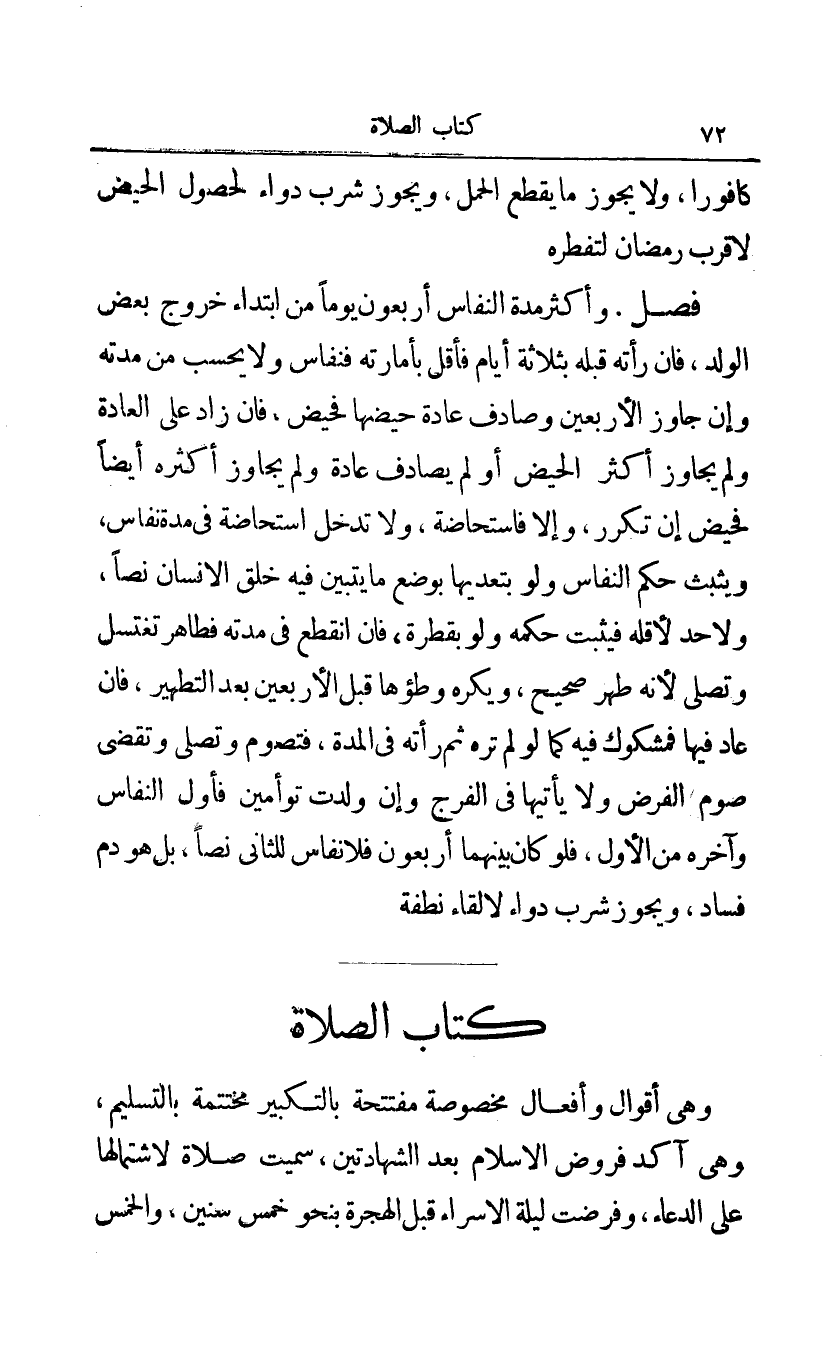 ٧٢
كتاب الصلاة
كافورا، ولا يجوز ما يقطع الحمل، ويجوز شرب دواء لحصول الحيض
لا قرب رمضان لتفطره
فصل. وأكثر مدة النفاس أربعون يوماً من ابتداء خروج بعض
الولد، فان رأته قبله بثلاثة أيام فأقل بأمارته فنفاس ولا يحسب من مدته
وإن جاوز الأربعين وصادف عادة حيضها فحيض، فان زاد على العادة
ولم يجاوز أكثر الحيض أو لم يصادف عادة ولم يجاوز أكثره أيضاً
فحيض إن تكرر، وإلا فاستحاضة، ولا تدخل استحاضة فى مدة نفاس،
ويثبت حكم النفاس ولو بتعديها بوضع ما يتبين فيه خلق الانسان نصاً،
ولا حد لأقله فيثبت حكمه ولو بقطرة، فان انقطع فى مدته فطاهر تغتسل
وتصلى لأنه طهر صحيح، ويكره وطؤها قبل الأربعين بعد التطهير، فان
عاد فيها فمشكوك فيه كما لو لم تره ثم رأته فى المدة، فتصوم وتصلى وتقضى
صوم الفرض ولا يأتيها فى الفرج وإن ولدت توأمين فأول النفاس
وآخره من الأول، فلو كان بينهما أربعون فلا نفاس للثانى نصاً، بل هو دم
فساد، ويجوز شرب دواء لالقاء نطفة
كتاب الصلاة
وهى أقوال وأفعال مخصوصة مفتتحة بالتكبير مختتمة بالتسليم،
وهى آكد فروض الاسلام بعد الشهادتين، سميت صلاة لاشتمالها
على الدعاء، وفرضت ليلة الاسراء قبل الهجرة بنحو خمس سنين، والخمس